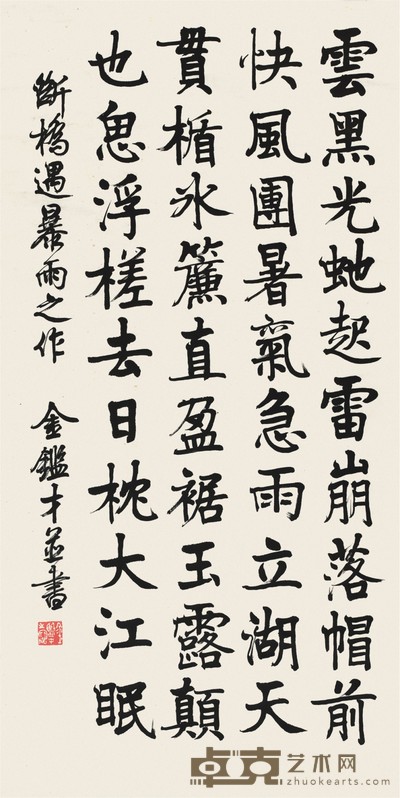 雲黑光虵起雷崩落帽前
快風團暑氣急雨立湖天
貫楯氷簾直盈裾玉露顛
也思浮槎去日枕大江眠
斷橋遇暴雨之作 金鑑才並書
卓克艺术网
zhuokearts.com